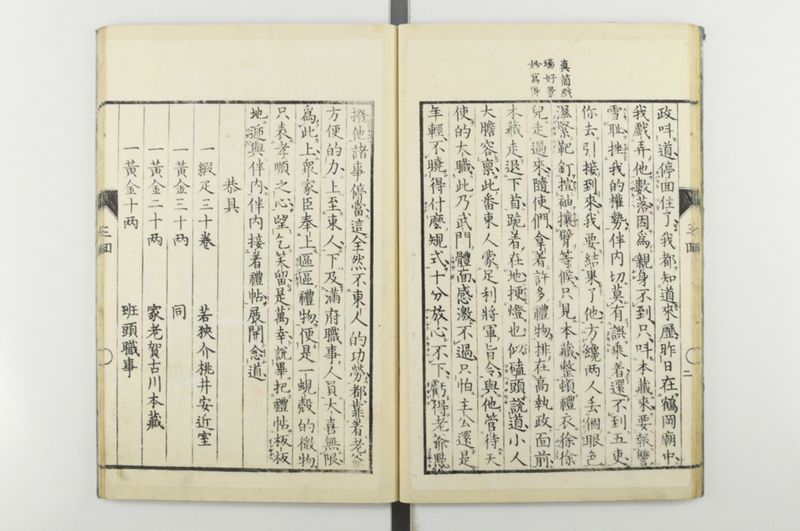 真箇戲
場好景
妙寫得
政呌道停面住了我都知道來歷昨日在鶴岡廟中
我戲弄他數落因爲親身不到只呌本藏來要報讐
雪耻挫我的權勢伴內切莫有誤乘着還不到五更
你去引接到來我要結果了他方纔兩人丢個眼色
濕緊靶釘揎袖攘臂等候只見本藏整頓禮衣徐徐
兒走過來隨使們拿着許多禮物排在高執政面前
本藏走退下首跪着在地挭燈也似磕頭說道小人
大膽容禀此番東人蒙足利將軍旨令與他管待天
使的大職此乃武門體面感激不過只怕主公還是
年輕不曉得什麽規式十分放心不下虧得老爺㸃
撥他諸事停當這全然不東人的功勞都靠着老爺
方便的力上至東人下及滿府職事人員大喜無限
爲此上衆家臣奉上區區禮物便是一蜆殻的微物
只表孝順之心望乞笑留是萬幸說畢把禮帖板板
地遞與伴內伴內接着禮帖展開念道
恭具
一緞疋三十卷 若狹介桃井安近室
一黃金三十两 同
一黃金二十两 家老賀古川本藏
一黃金十两 班頭職事
二